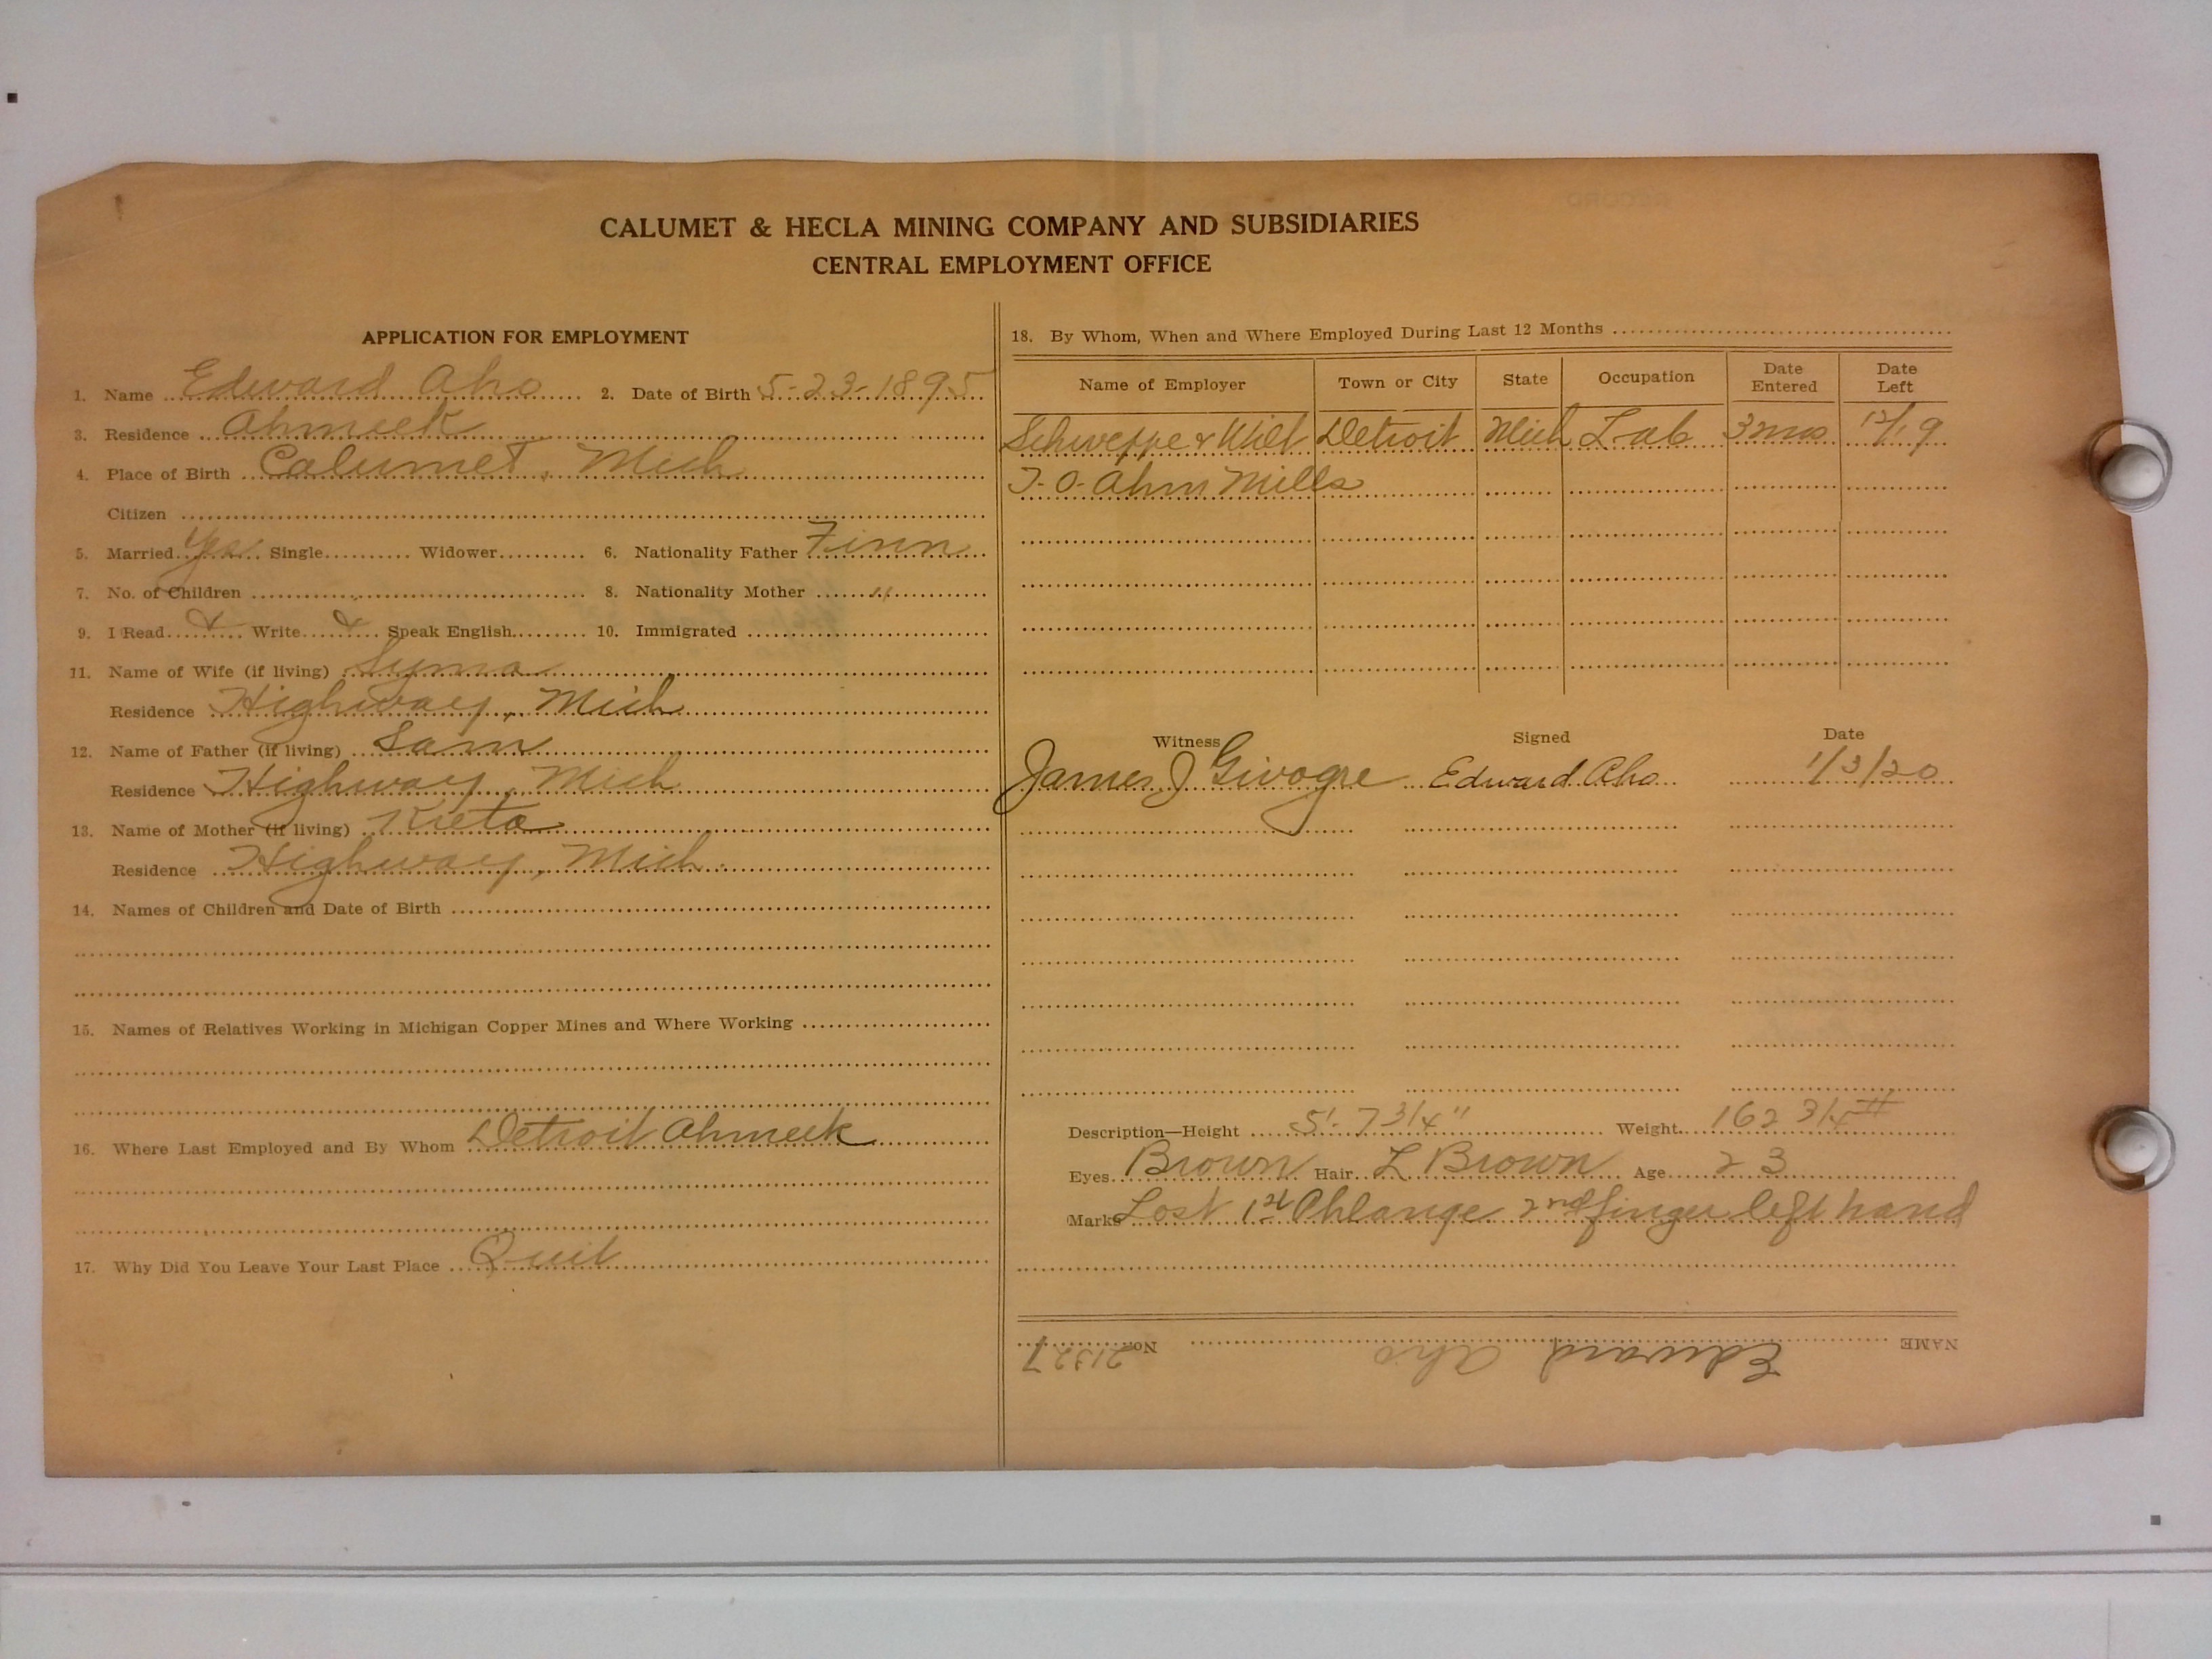 CALUMET & HECLA MINING COMPANY AND SUBSIDIARIES
CENTRAL EMPLOYMENT OFFICE
APPLICATION FOR EMPLOYMENT
1. Name Edward Aho 2. Date of Birth 5-23-1895
3. Residence Ahmeek
4. Place of Birth Calumet, Mich
Citizen
5. Married Yes Single Widower 6. Nationality Father Finn
7. No. of Children 8. Nationality Mother "
9. I Read Write Speak English 10. Immigrated
11. Name of Wife (if living) Lyma
Residence Highway, Mich
12. Name of Father (if living) Sam
Residence Highway, Mich
13. Name of Mother (if living) Kreta
Residence Highway, Mich.
14. Names of Children and Date of Birth
15. Names of Relatives Working in Michigan Copper Mines and Where Working
16. Where Last Employed and By Whom Detroit Ahmeek
17. Why Did You Leave Your Last Place Quit
18. By Whom, When and Where Employed During Last 12 Months
Name of Employer Town or City State Occupation Date Entered Date Left
Schweppe & Wilt Detroit Mich Lab 3 mos 12/19
T-O-Ahm Mills
Witness Signed Date
James J Givogre Edward Aho 1/3/20
Description—Height 5'-7 3/4" Weight 162 3/4 #
Eyes Brown Hair L Brown Age 23
Marks Lost 1st Phlange 2nd finger left hand
NAME Edward Aho No. 21327